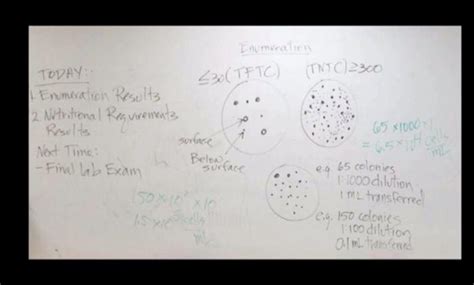 Enumeration
TODAY:
1. Enumeration Results
2. Nutritional Requirements
Results
Next Time:
- Final Lab Exam
≤30 (TFTC)
(TNTC) ≥300
surface
Below surface
65 x 1000 x 1
= 6.5 x 10⁴ cells/mL
e.g. 65 colonies
1:1000 dilution
1 mL transferred
e.g. 150 colonies
1:100 dilution
0.1 mL transferred
150 x 10² x 10
1.5 x 10⁵ cells/mL